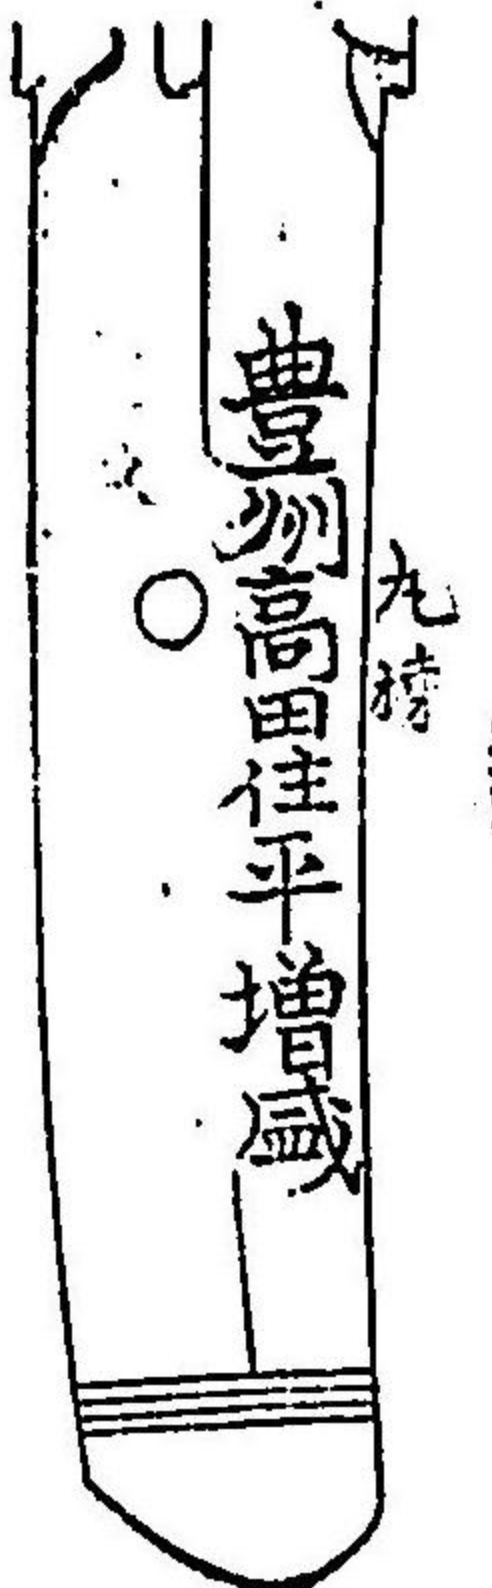 豊州高田住平増盛
九棟